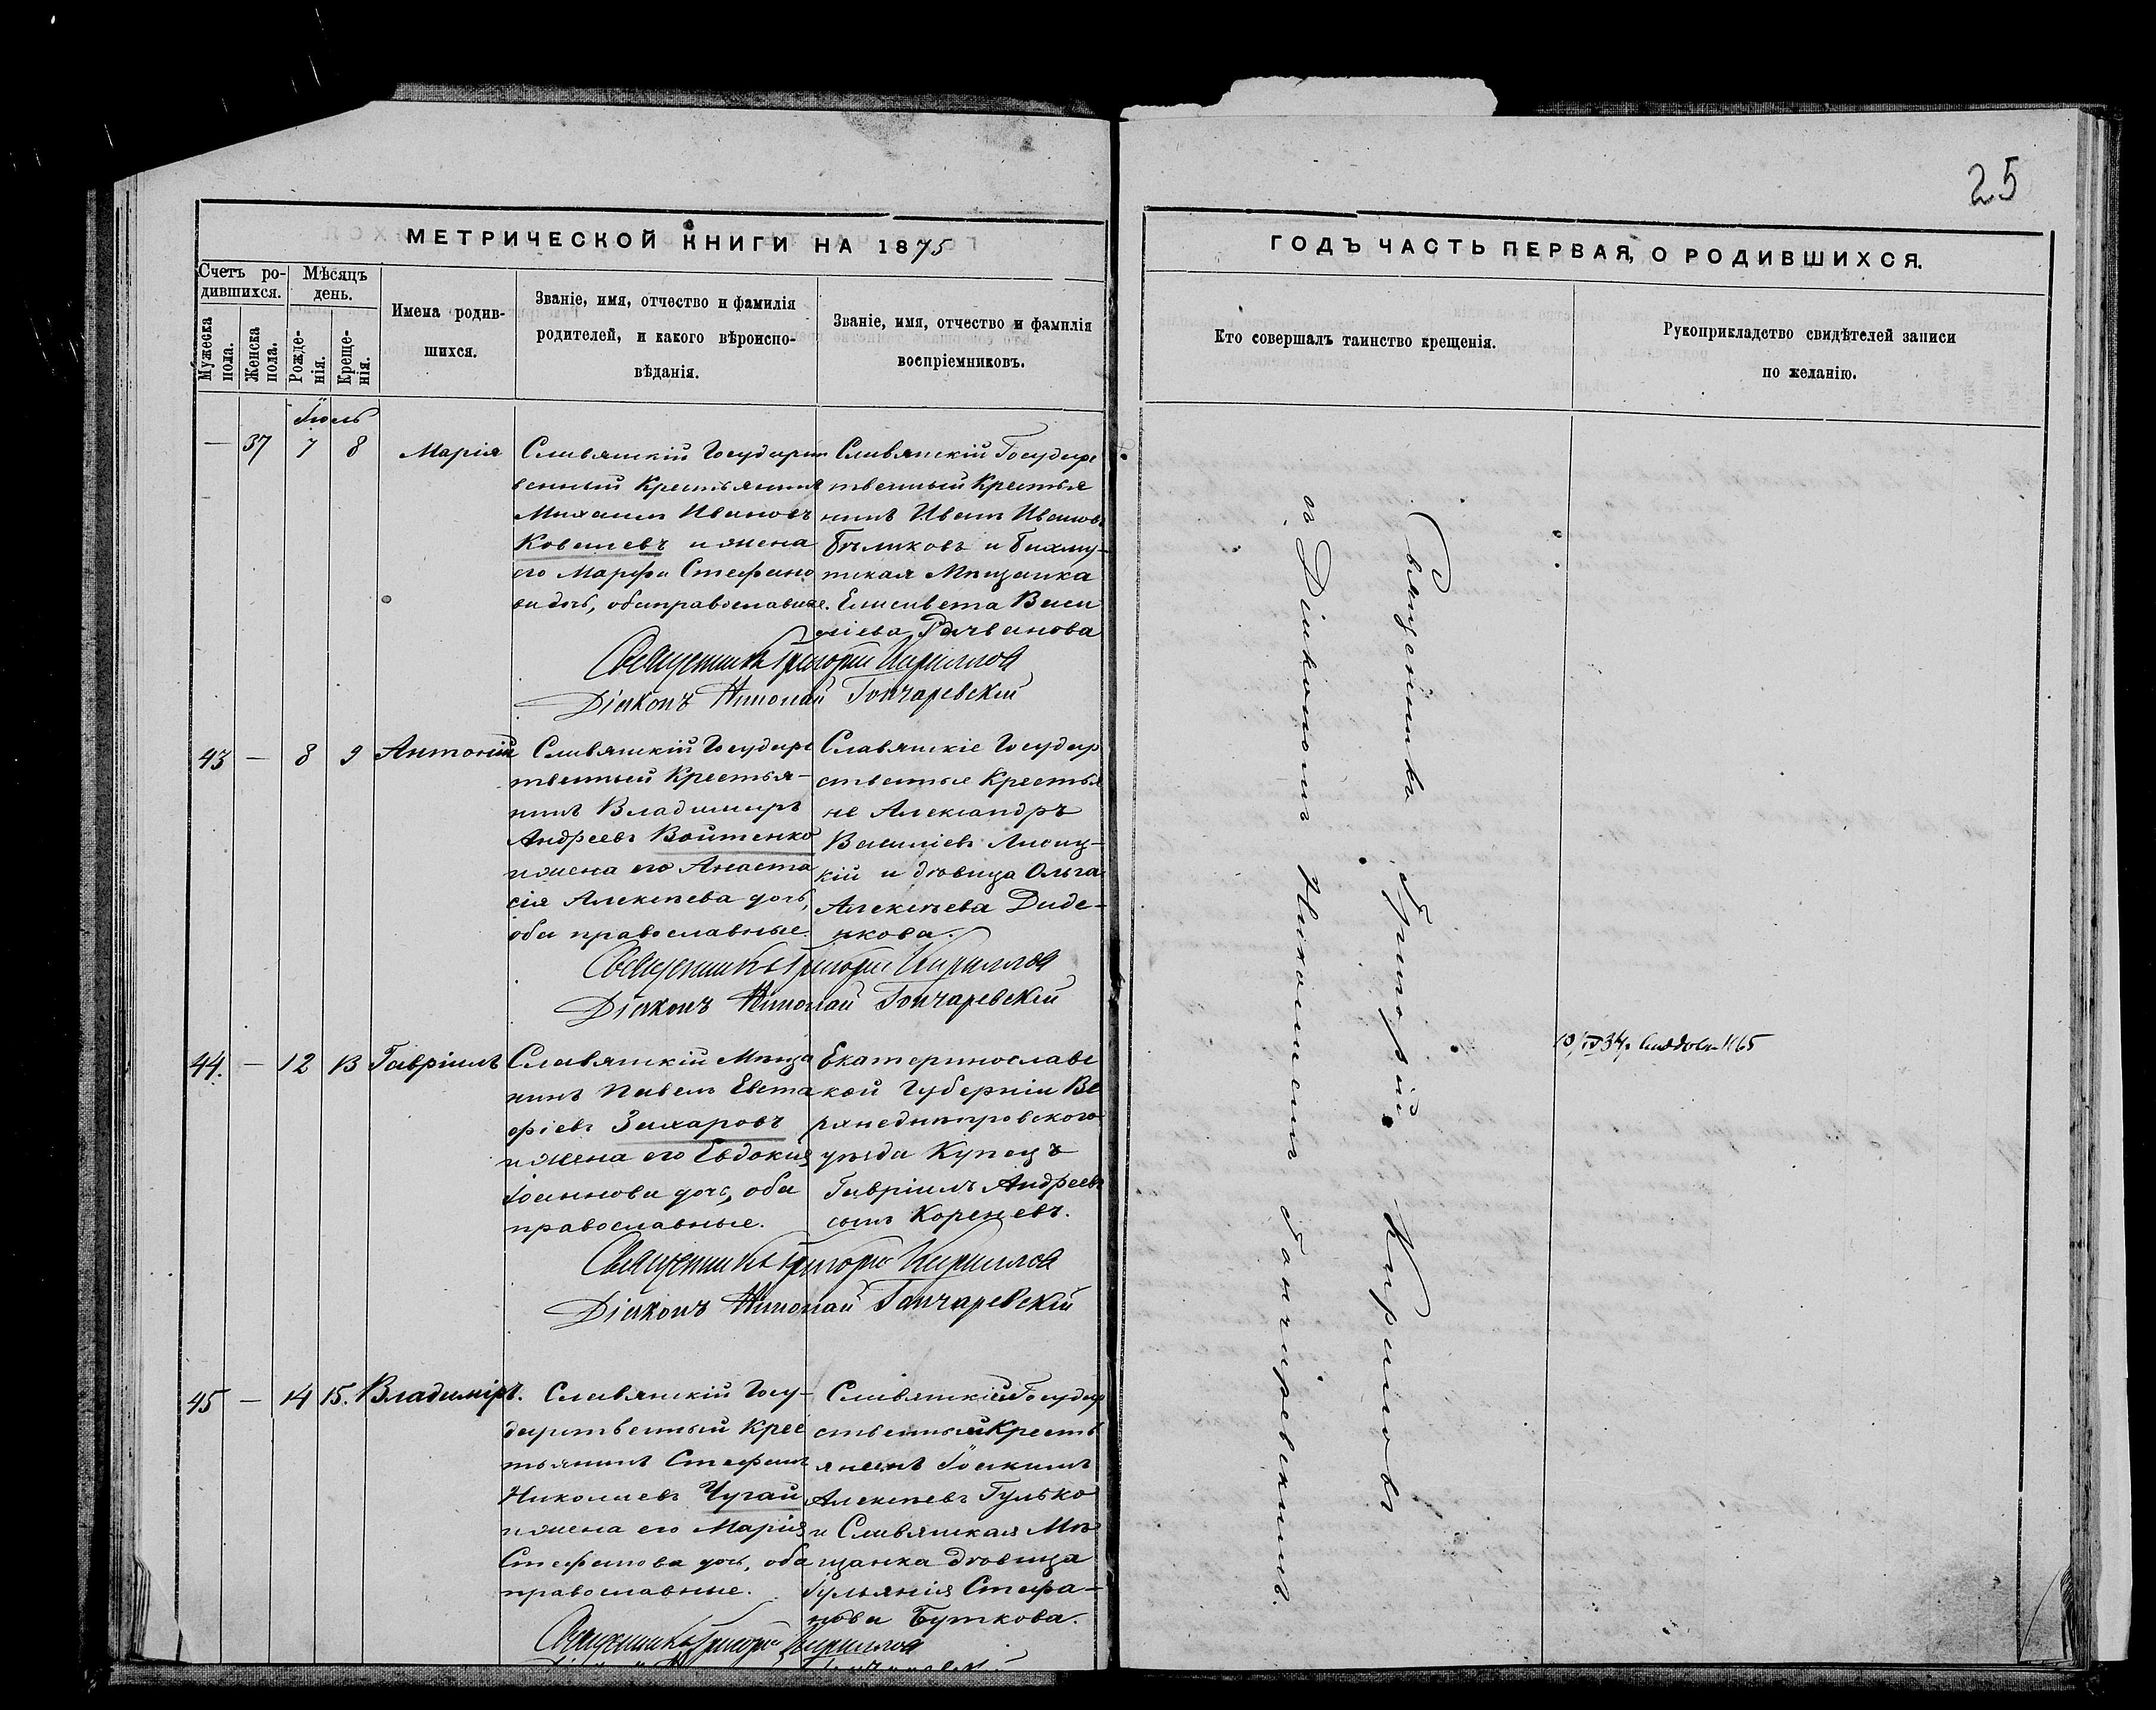 25
МЕТРИЧЕСКОЙ КНИГИ НА 1875
ГОДЪ ЧАСТЬ ПЕРВАЯ, О РОДИВШИХСЯ.
Счетъ ро-
дившихся.
Мужеска
пола.
Женска
пола.
Мѣсяцъ
день.
Рожде-
нія.
Креще-
нія.
Имена родив-
шихся.
Званіе, имя, отчество и фамилія
родителей, и какого вѣроиспо-
вѣданія.
Званіе, имя, отчество и фамилія
воспріемниковъ.
Кто совершалъ таинство крещенія.
Рукоприкладство свидѣтелей записи
по желанію.
Іюль
— 37 7 8 Марія
Славянскій Государст
венный Крестьянинъ
Михаилъ Ивановъ
Ковалевъ и жена
его Марфа Стефано
ва дочь, оба православные.
Славянскій Государс
твенный Крестья
нинъ Иванъ Ивановъ
Бѣликовъ и Бахму-
тская Мѣщанка
Елисавета Васи
ліева
Священникъ Григорій Кирилловъ
Діаконъ Николай Гончаревскій
43 — 8 9 Антоній
Славянскій Государс
твенный Крестья-
нинъ Владимиръ
Андреевъ Войтенко
и жена его Анаста
сія Алексѣева дочь,
оба православные.
Славянскіе Государ
ственные Крестья
не Александръ
Василіевъ Лисиц-
кій и дѣвица Ольга
Алексѣева Диде-
нкова.
Священникъ Григорій Кирилловъ
Діаконъ Николай Гончаревскій
44. — 12 13 Гавріилъ
Славянскій Мѣща
нинъ Павелъ Евста
фіевъ Захаровъ
и жена его Евдокия
Іоаннова дочь, оба
православные.
Екатеринославс
кой Губерніи Ве
рхнеднѣпровского
уѣзда Купецъ
Гавріилъ Андреевъ
сынъ Кореневъ.
Священникъ Григорій Кирилловъ
Діаконъ Николай Гончаревскій
45 — 14 15. Владиміръ.
Славянскій Госу-
дарственный Крес
тьянинъ Стефанъ
Николаевъ Чугай
и жена его Марія
Стефанова дочь, оба
православные.
Славянскій Государ
ственный Кресть
янинъ Іоакимъ
Алексѣевъ Гулько
и Славянская Мѣ
щанка дѣвица
Іульянія Стефа-
нова Буткова.
Священникъ Григорій Кирилловъ
Священникъ Григорій Кириловъ
съ Діакономъ Николаемъ Гончаревскимъ.